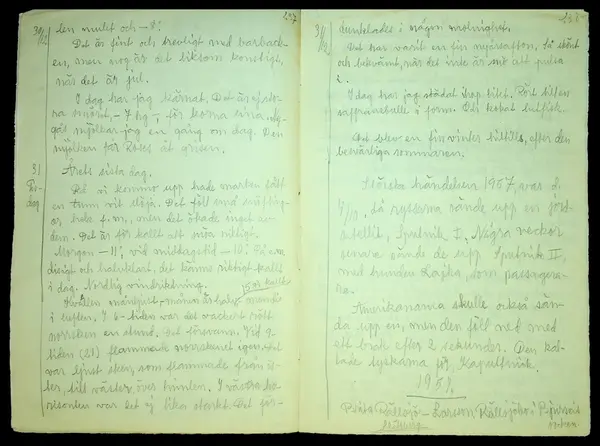 237
30/12
den mulet och -8°.
Det är fint och trevligt med barback-
en, men nog är det liksom konstigt,
när det är jul.
I dag har jag kärnat. Det är ej sto-
ra smöret, - 7 hg -, för korna sina.
mjölkar jag en gång om dag. Den
mjölken får Rosés åt grisen.
31
Tis-
dag
Årets sista dag.
Då vi kommo upp hade marken fått
en tunn vit slöja. Det föll små snöfling-
or hela f.m., men det ökade inget av
dem. Det är för kallt att snöa riktigt.
Morgon -11°, vid middagstid -10°. Få som
disigt och halvklart, det kännes riktigt kallt
i dag. Nordlig vindriktning.
Kvällen månljust, - månen är halv -
i luften. I 6-tiden var det vackert rött
norrsken en stund. Det försvann. Vid 9-
tiden (21) flammade norrskenet igen. Det
var ljust sken, som flammade från ös-
ter, till väster över himlen. I västra ho-
risonten var det ej lika starkt. Det för-
238
31/12
dunklades i någon molnighet.
Det har varit en fin nyårsafton. Så skönt
och bekvämt, när det inte är nåt att pulsa
i.
I dag har jag städat ihop litet. Rört till en
saffransbulle i form. Och kokat lutfisk.
Det blev en fin vinter hittills, efter den
besvärliga sommaren.
Största händelsen 1957, var d.
4/10, då ryssarna sände upp en jord-
satellit, Sputnik I. Några veckor
senare sände de upp Sputnik II,
med hunden Lajka, som passagera-
re.
Amerikanarna skulle också sän-
da upp en, men den föll ned med
ett brak efter 2 sekunder. Den kal-
lade tyskarna för Kaputtnik.
1958.
Larsson,